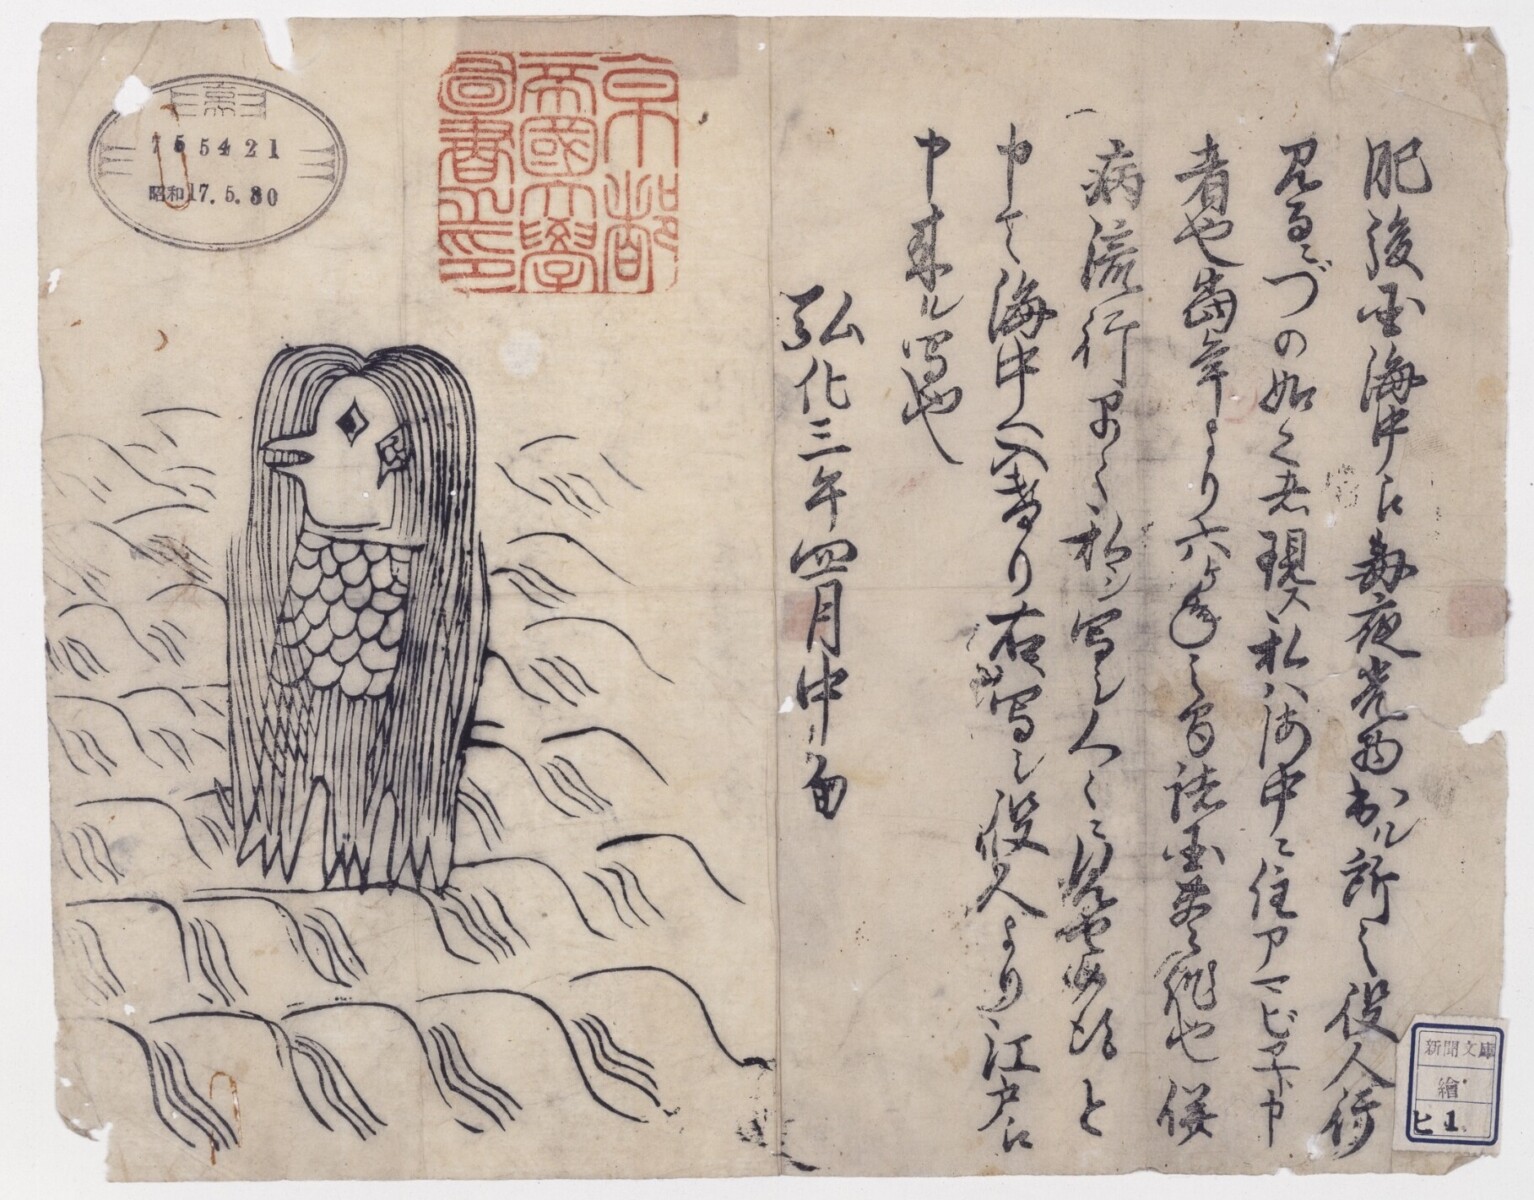 肥後国海中江毎夜光物出ル所之役人行
見るニづの如く者現ス私ハ海中ニ住アマビヱト申
者也当年より六ケ年之間諸国豊作也併
病流行早々私シ写シ人々ニ見せ候得と
申て海中へ入けり右写シ役人より江戸江
申来ル写也
弘化三年四月中旬
京都
帝國大學
圖書之印
京
755421
昭和17.5.30
新聞文庫
繪
ヒ 1